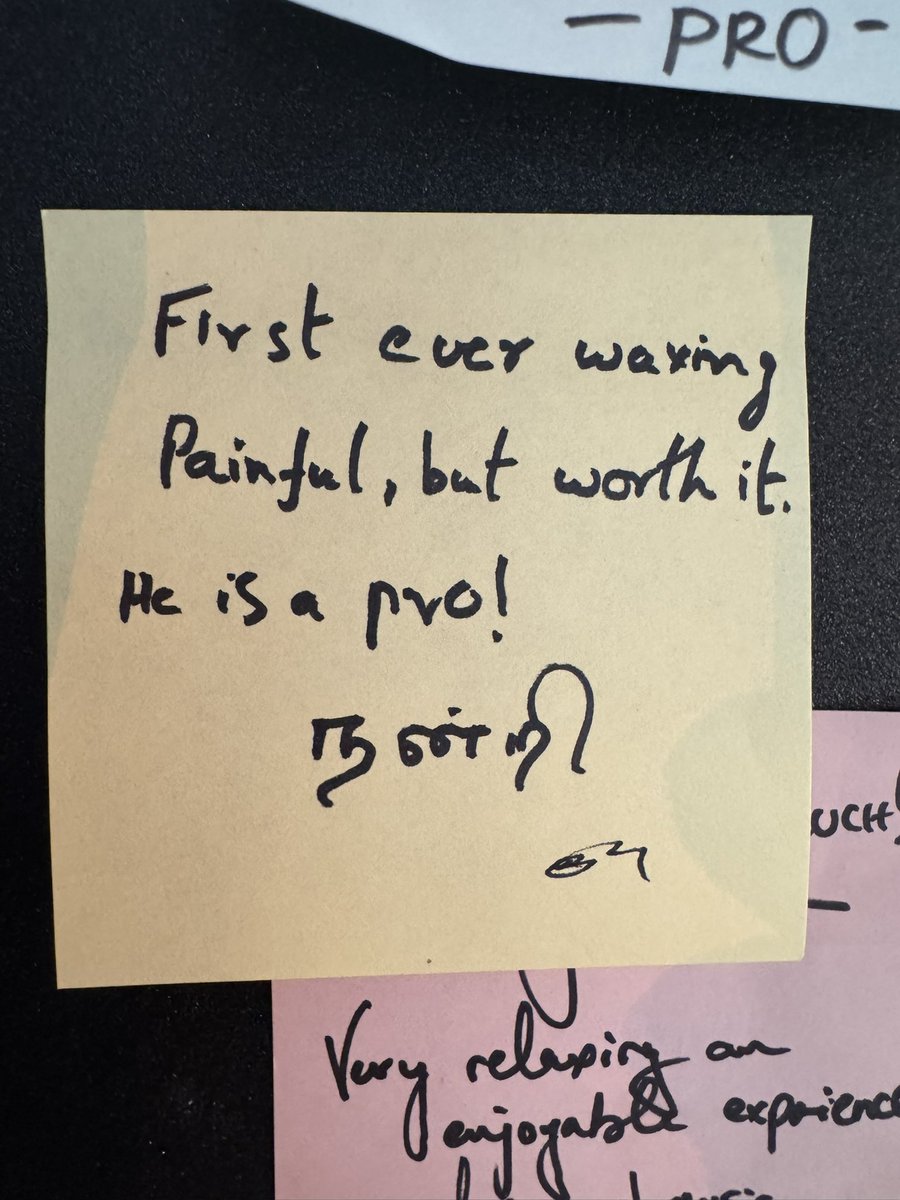 - PRO -
First ever waxing
Painful, but worth it.
He is a pro!
நன்றி
UCH!
Very relaxing an
enjoyable exprience